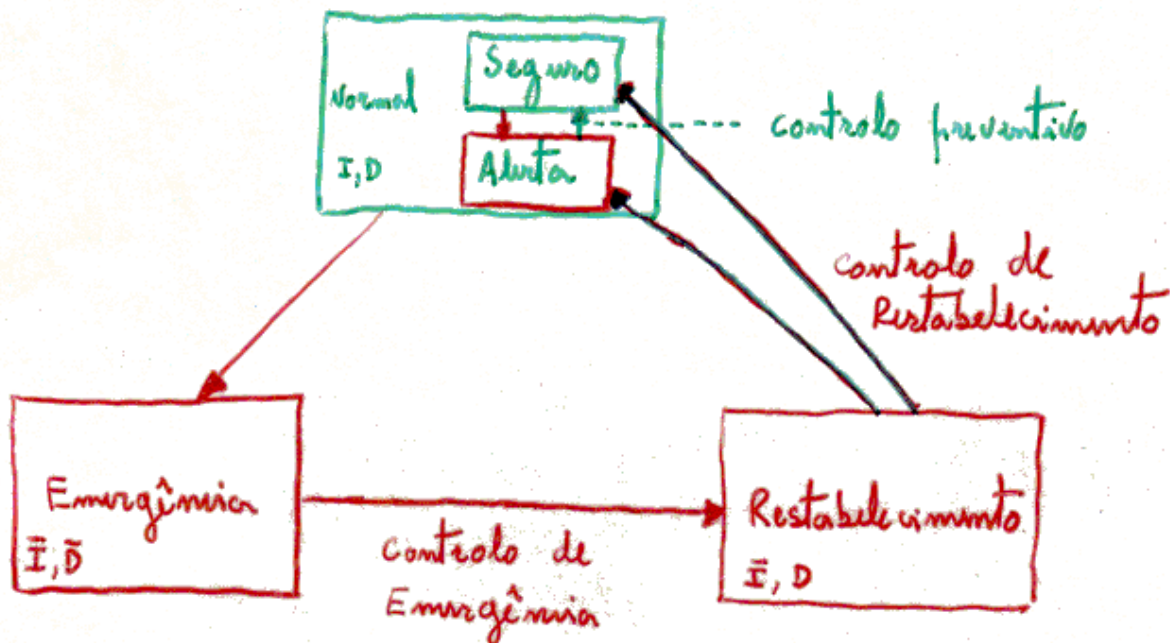 Seguro
Normal
controlo preventivo
I, D
Alerta
controlo de
Restabelecimento
Emergência
Ī, D̄
controlo de
Emergência
Restabelecimento
Ī, D